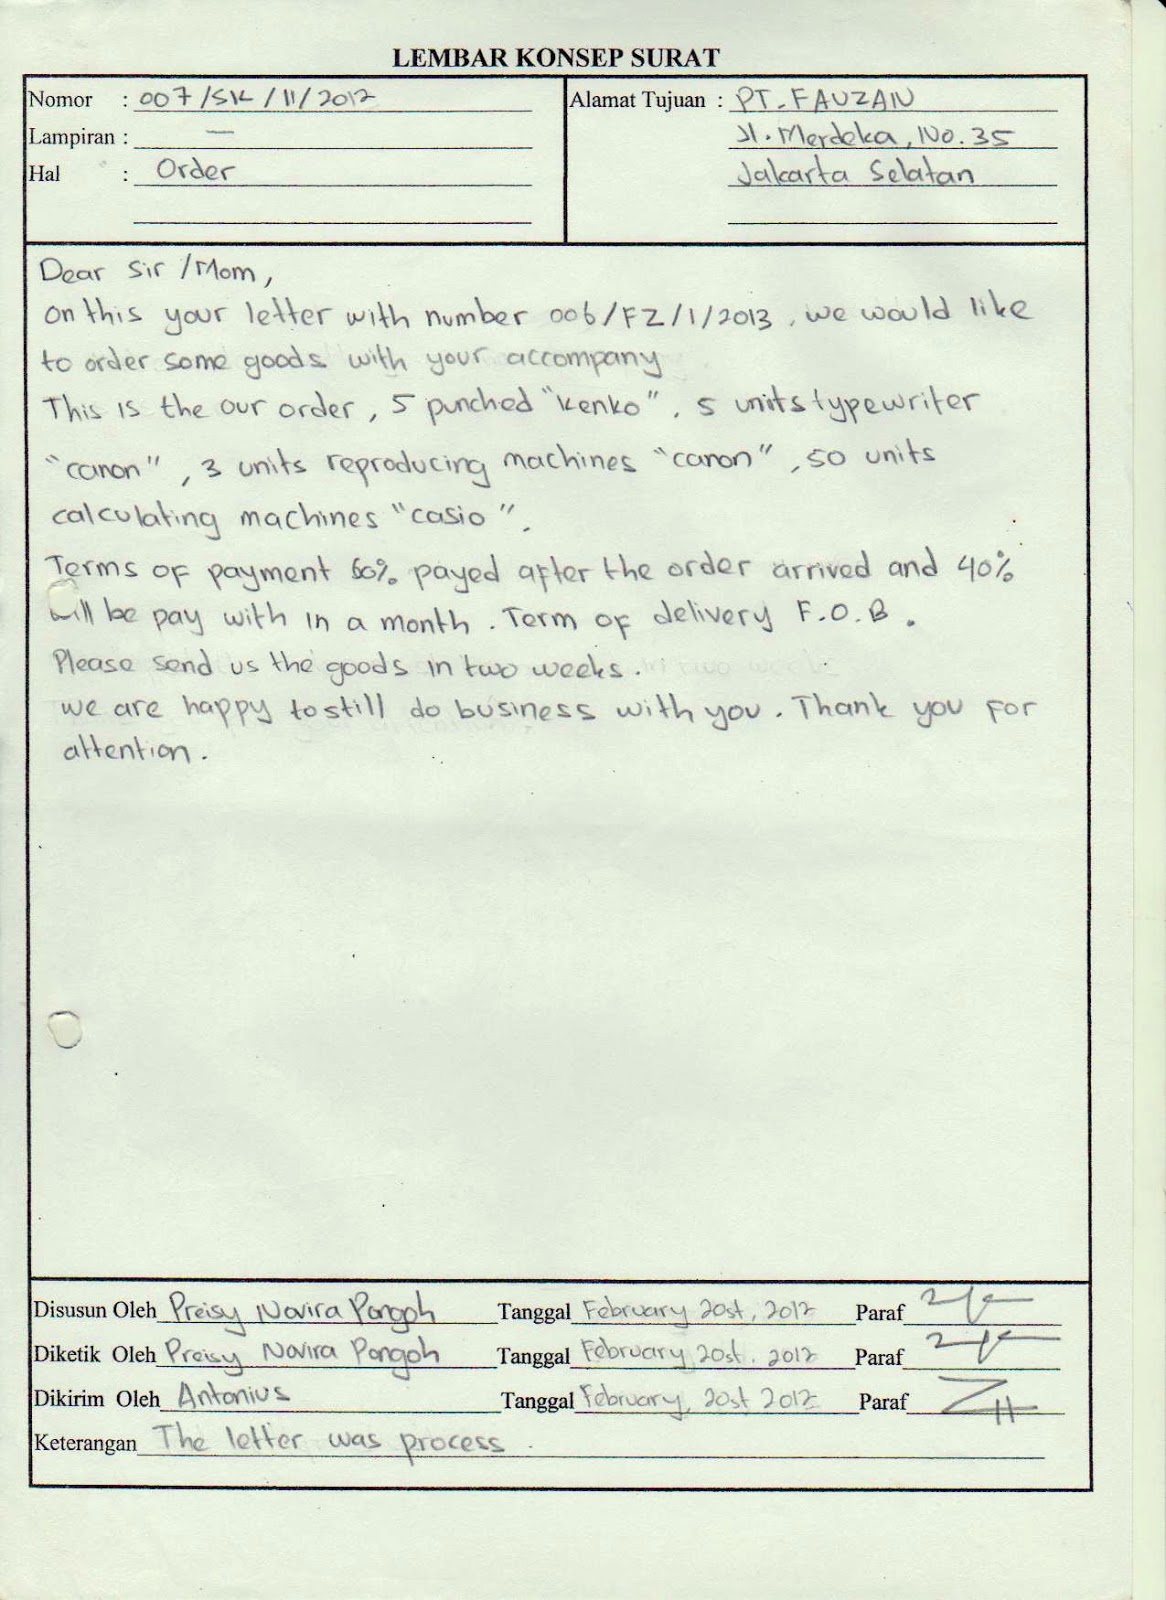 LEMBAR KONSEP SURAT
Nomor : 007/SK/II/2012
Lampiran : —
Hal : Order
Alamat Tujuan : PT. FAUZAN
Jl. Merdeka, No. 35
Jakarta Selatan
Dear Sir /Mom,
on this your letter with number 006/FZ/1/2013, we would like
to order some goods with your accompany
This is the our order, 5 punched "kenko", 5 units typewriter
"canon", 3 units reproducing machines "canon", 50 units
calculating machines "casio".
Terms of payment 60% payed after the order arrived and 40%
will be pay with in a month. Term of delivery F.O.B.
Please send us the goods in two weeks.
we are happy to still do business with you. Thank you for
attention.
Disusun Oleh Preisy Novira Pongoh Tanggal February 20st, 2012 Paraf
Diketik Oleh Preisy Novira Pongoh Tanggal February 20st. 2012 Paraf
Dikirim Oleh Antonius Tanggal February, 20st 2012 Paraf
Keterangan The letter was process.